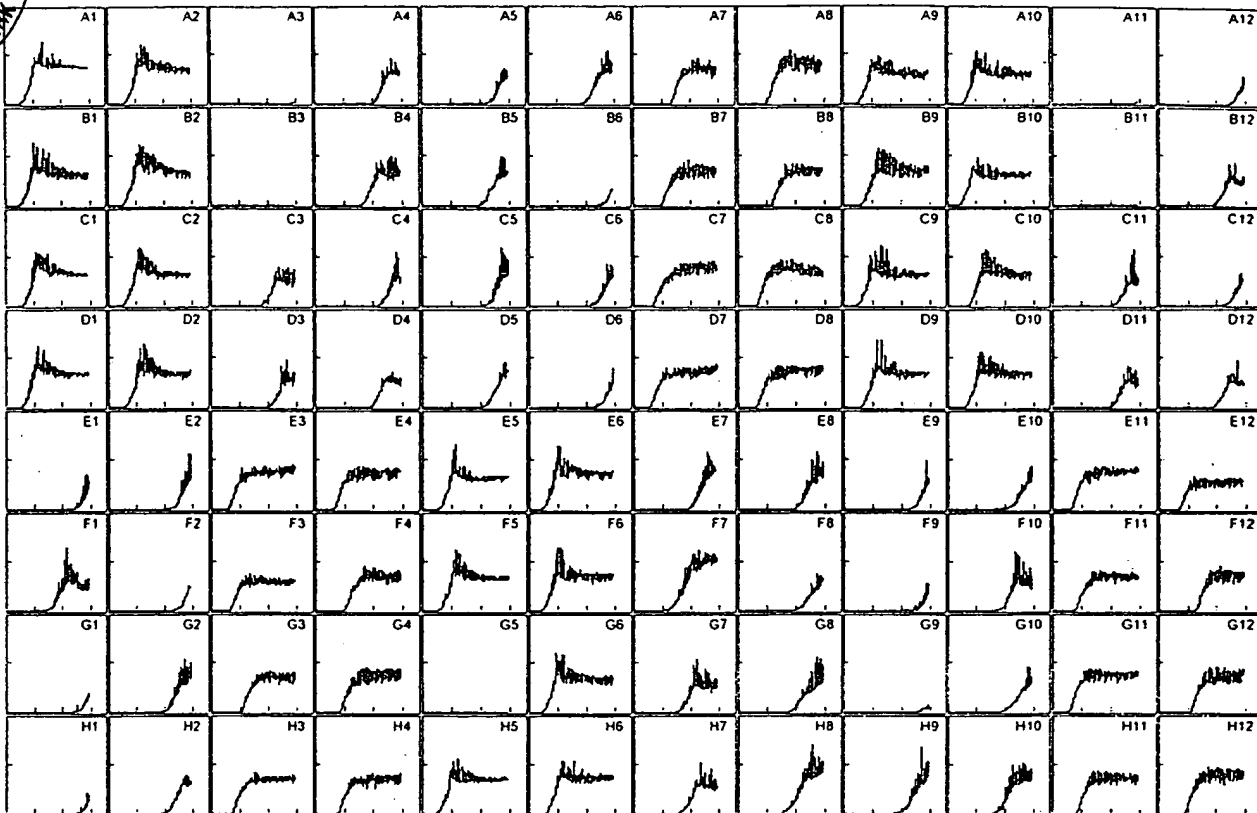 A1 A2 A3 A4 A5 A6 A7 A8 A9 A10 A11 A12
B1 B2 B3 B4 B5 B6 B7 B8 B9 B10 B11 B12
C1 C2 C3 C4 C5 C6 C7 C8 C9 C10 C11 C12
D1 D2 D3 D4 D5 D6 D7 D8 D9 D10 D11 D12
E1 E2 E3 E4 E5 E6 E7 E8 E9 E10 E11 E12
F1 F2 F3 F4 F5 F6 F7 F8 F9 F10 F11 F12
G1 G2 G3 G4 G5 G6 G7 G8 G9 G10 G11 G12
H1 H2 H3 H4 H5 H6 H7 H8 H9 H10 H11 H12